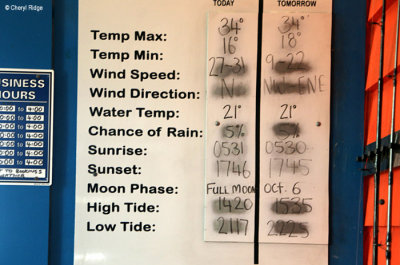 © Cheryl Ridge
TODAY TOMORROW
Temp Max: 34° 34°
Temp Min: 16° 18°
Wind Speed: 27-31 9-22
Wind Direction: NW-ENE
Water Temp: 21° 21°
Chance of Rain: 5% 5%
Sunrise: 0531 0530
Sunset: 1746 1745
Moon Phase: FULL MOON OCT. 6
High Tide: 1420 1535
Low Tide: 2117 2225
USINESS
HOURS
0:00 to 4:00
0:00 to 4:00
0:00 to 4:00
0:00 to 4:00
0:00 to 4:00